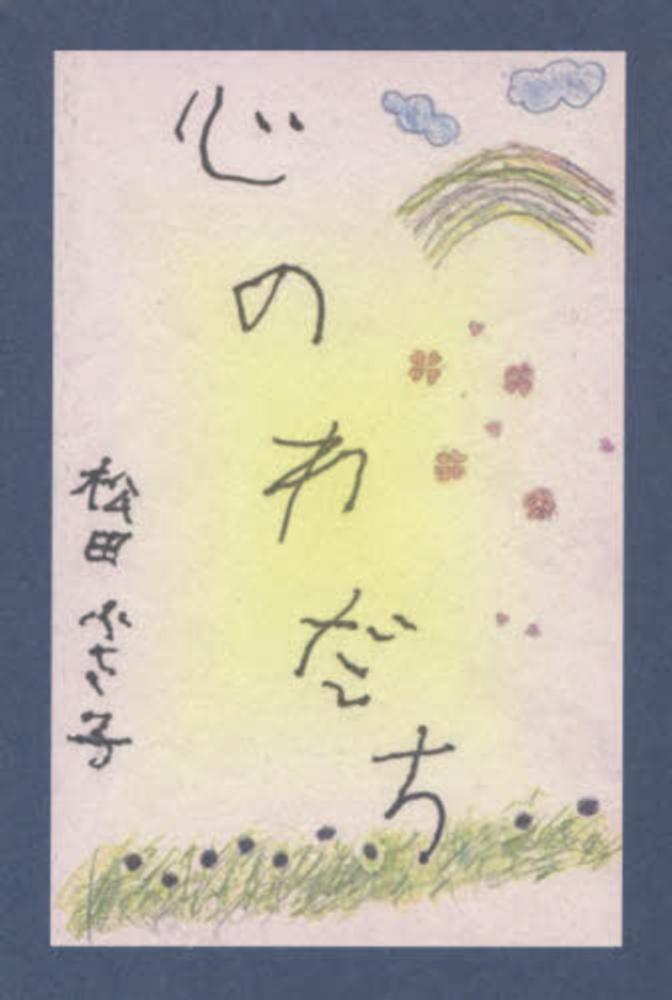 心のわだち
松田ふさ子